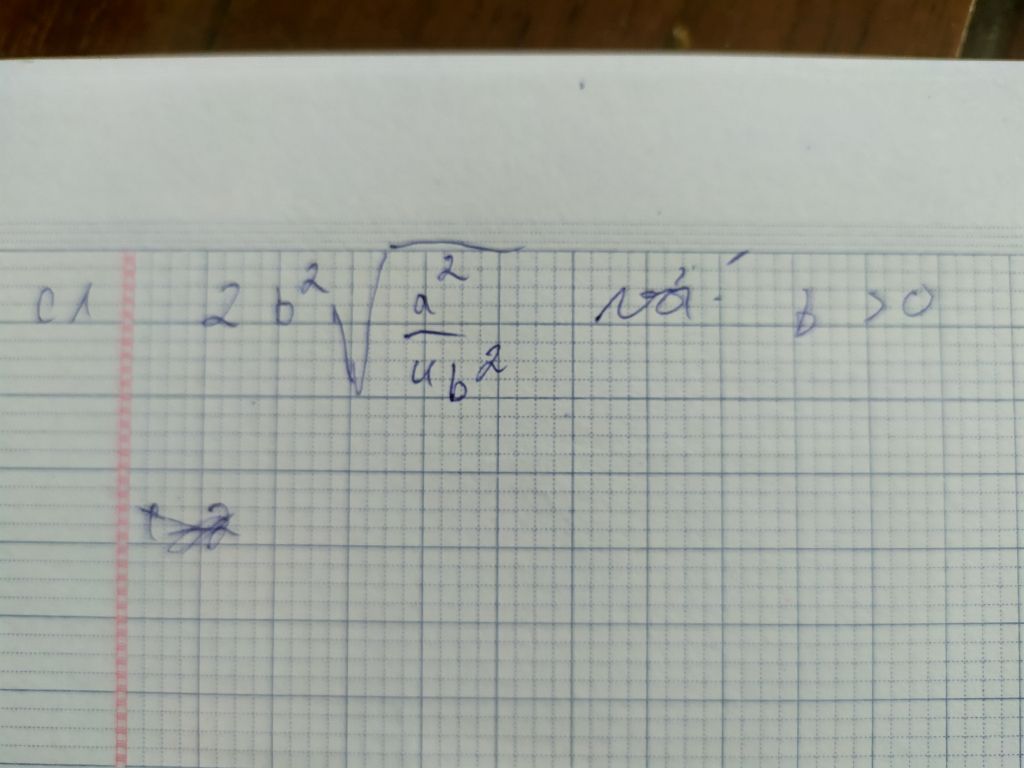 c) 2 b² √(a²/4b²) với b > 0